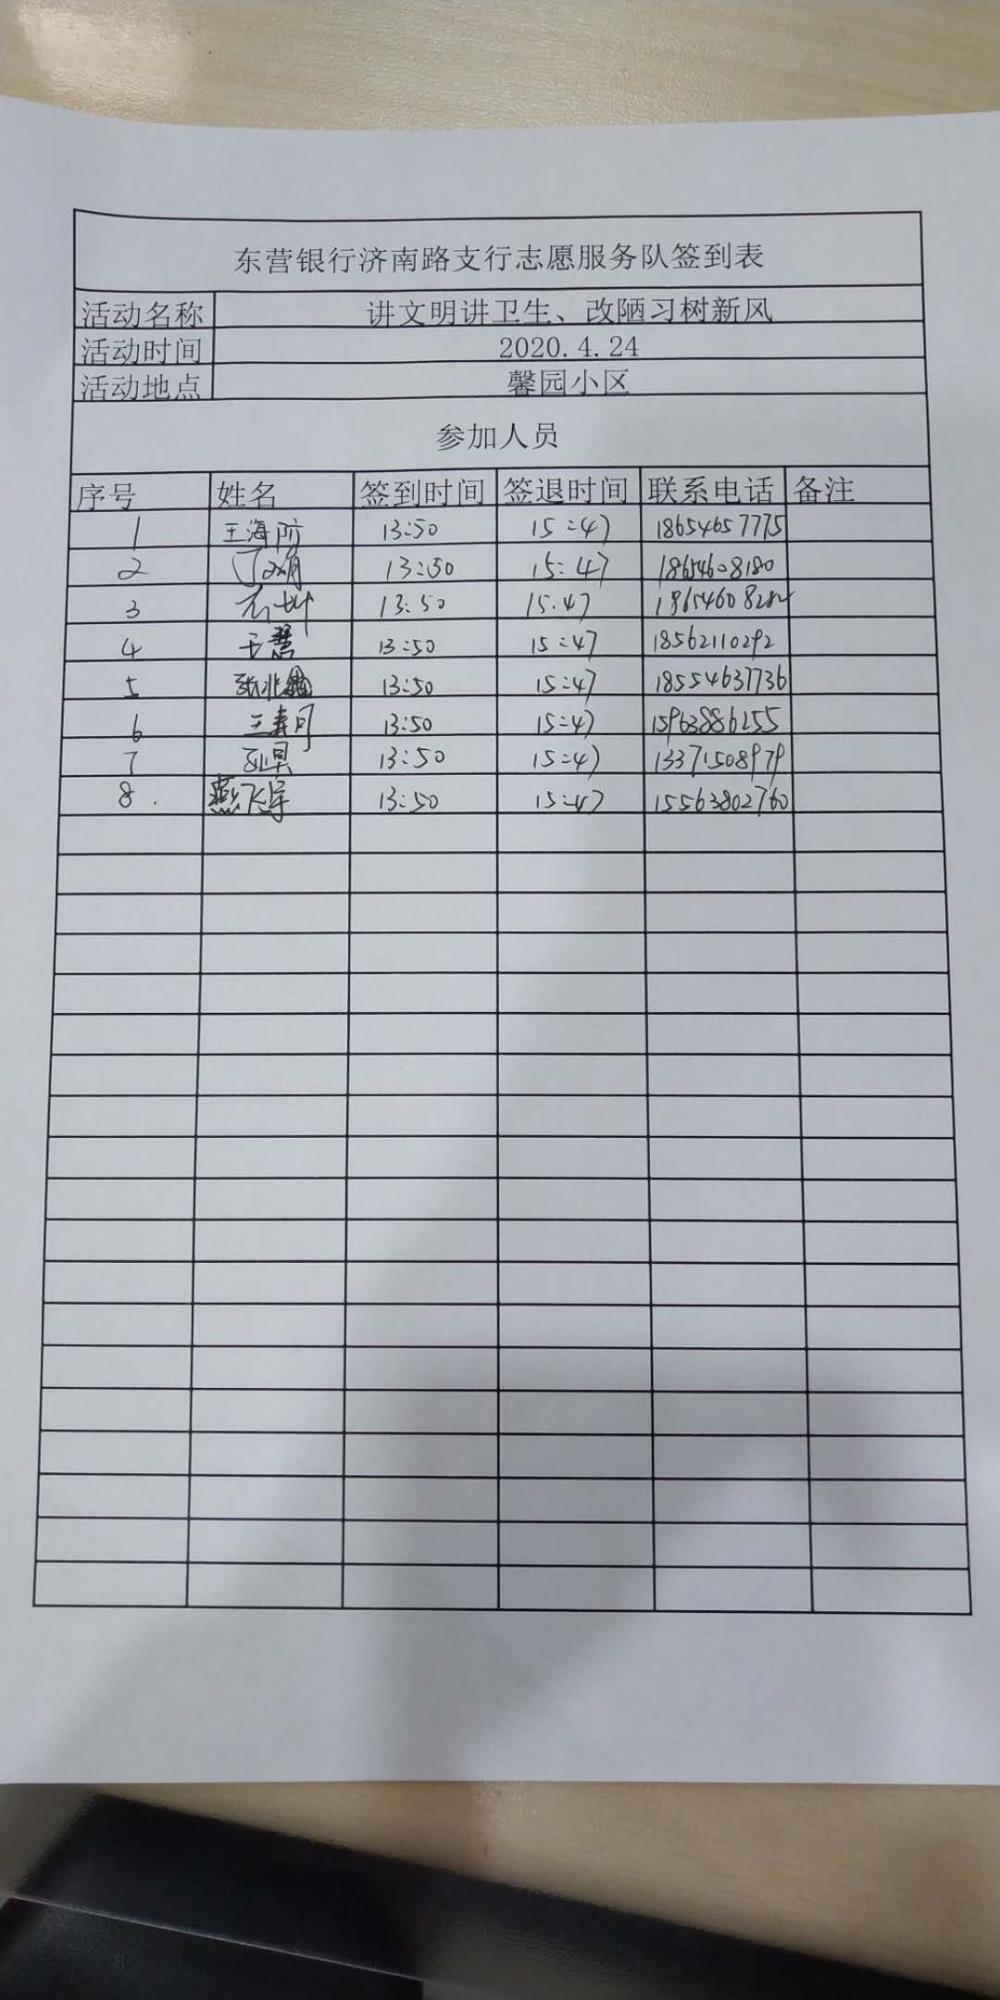 东营银行济南路支行志愿服务队签到表
活动名称 讲文明讲卫生、改陋习树新风
活动时间 2020.4.24
活动地点 馨园小区
参加人员
序号 姓名 签到时间 签退时间 联系电话 备注
1 王海防 13:50 15:47 18654657775
2 13:50 15:47 18654608180
3 13:50 15.47
4 王慧 13:50 15:47 18562110292
5 13:50 15:47 18554637736
6 王寿同 13:50 15:47 15963886255
7 13:50 15:47 13371508979
8. 燕飞宇 13:50 15:47 15563802760